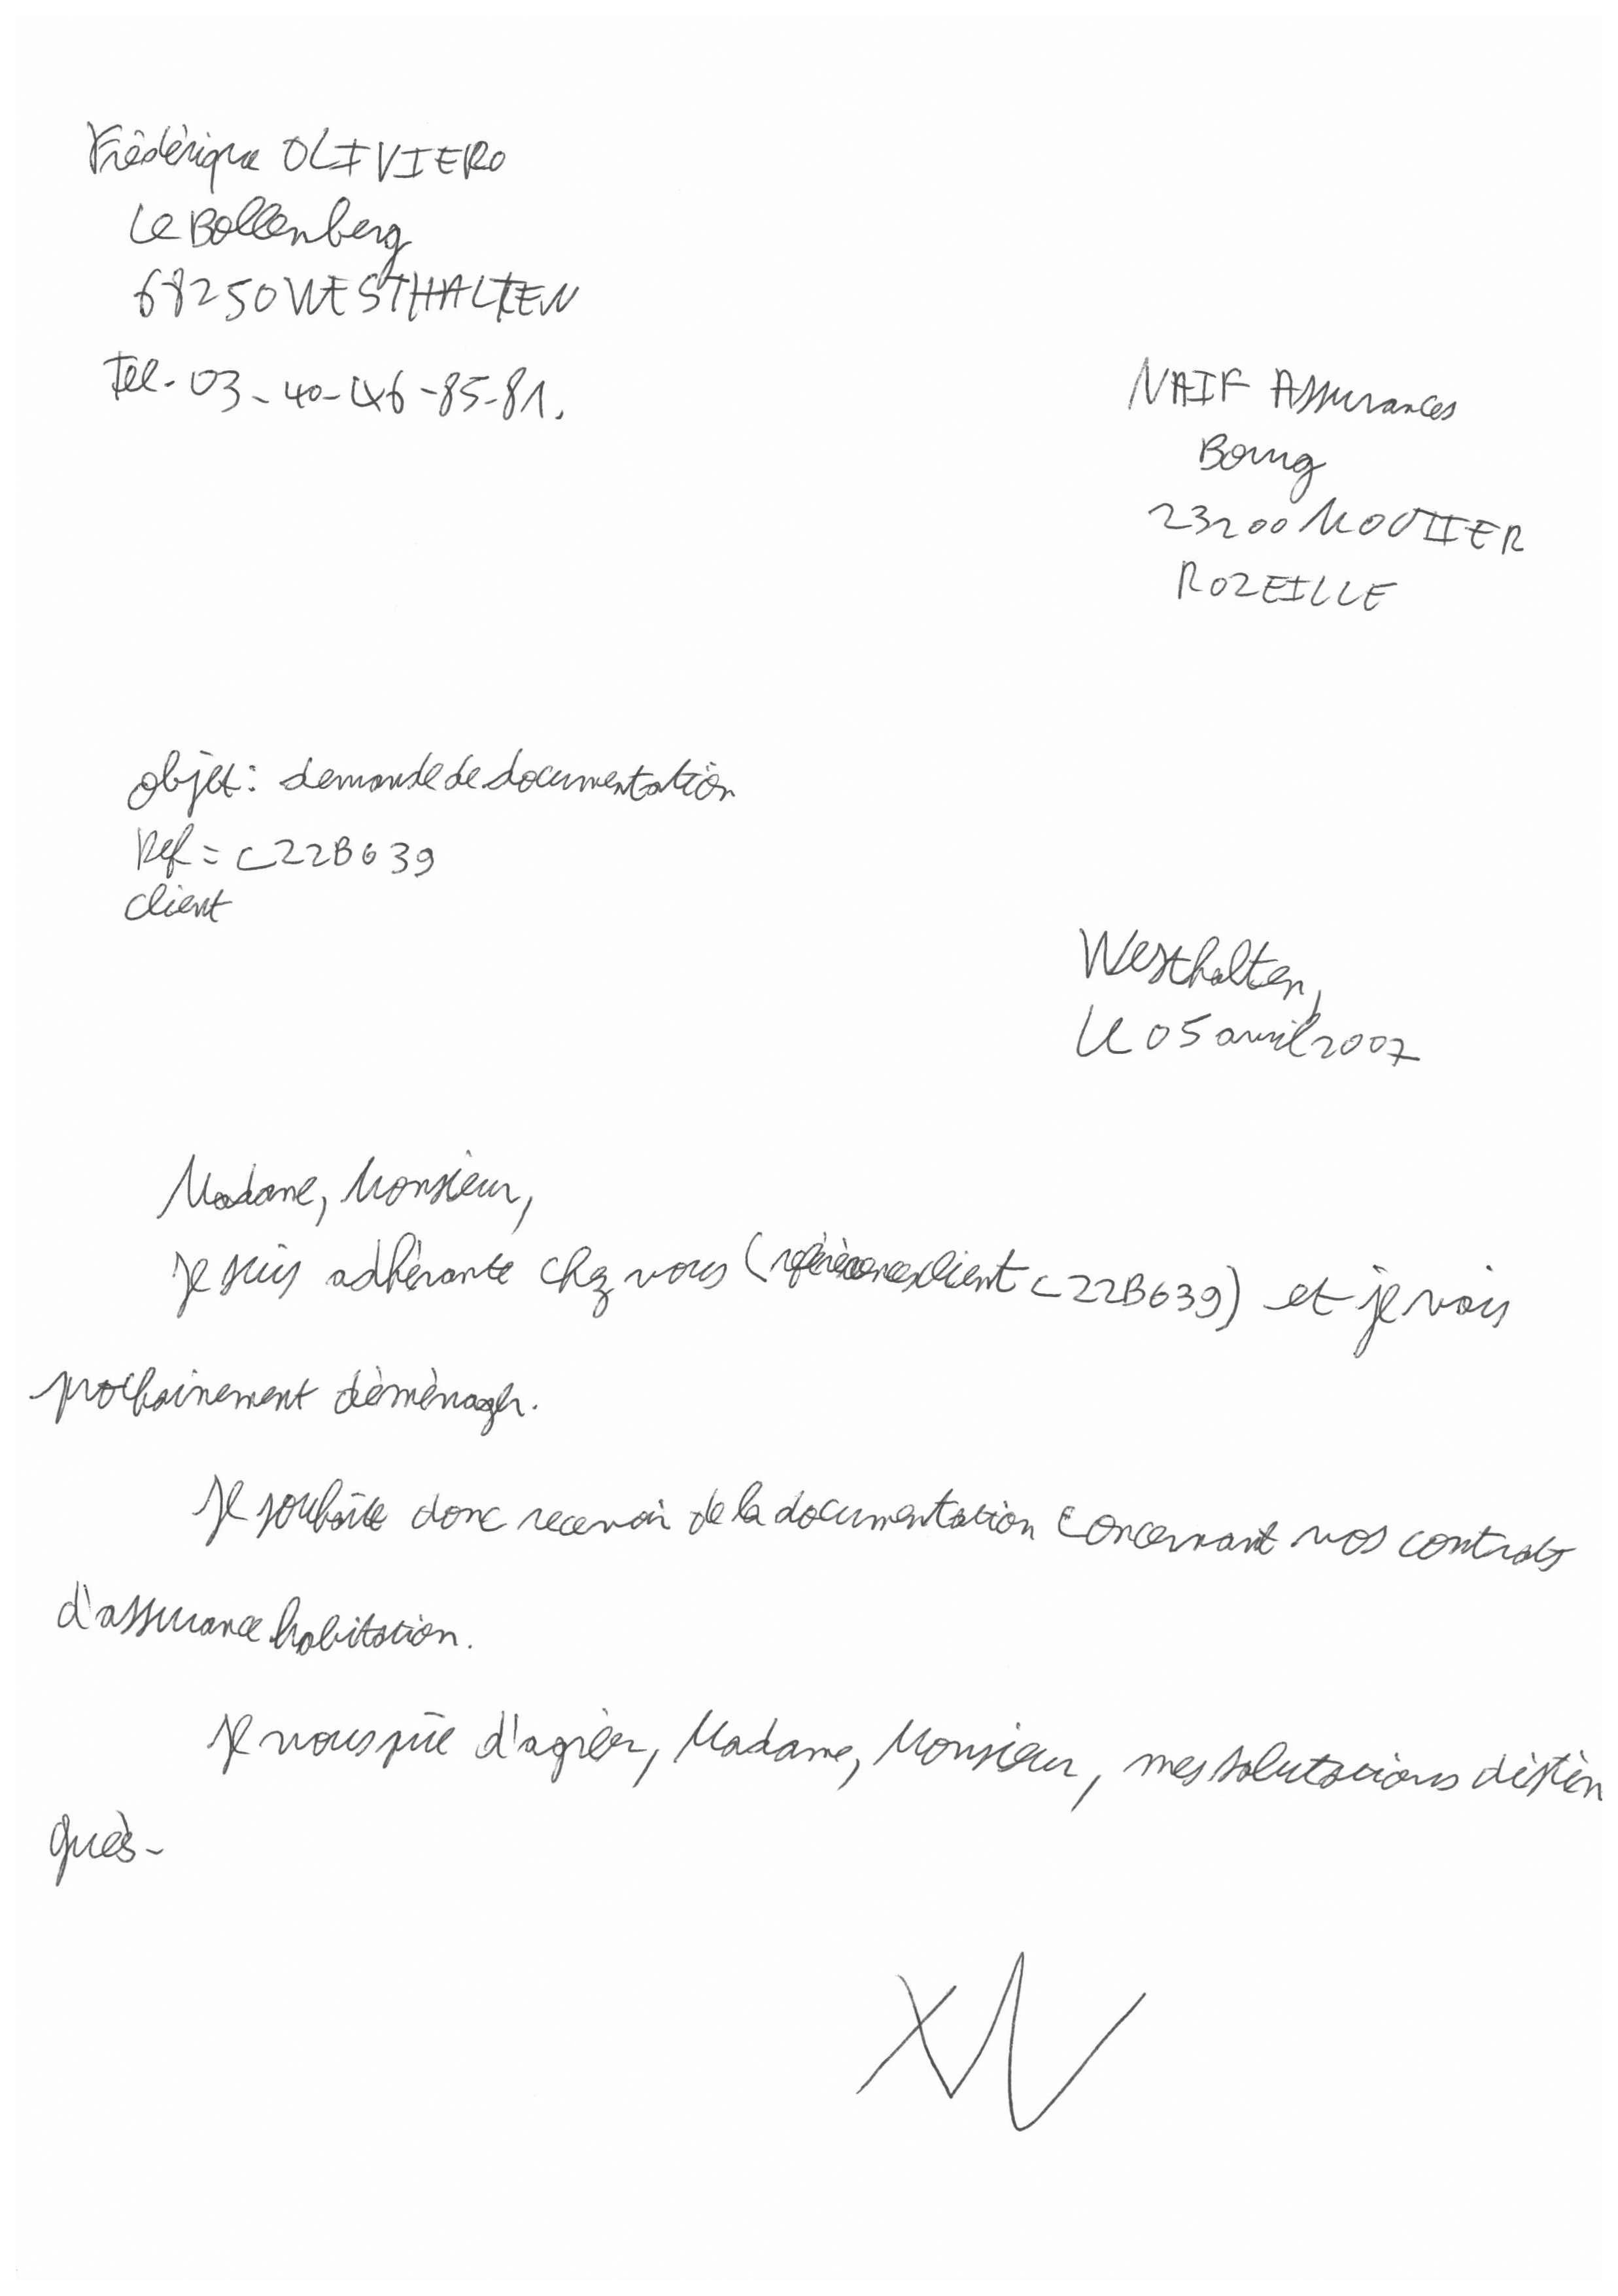 Frédérique OLIVIERO
Le Bollenberg
68250 WESTHALTEN
Tel. 03-40-46-85-81.
NAIF Assurances
Bourg
23200 MOUTIER
ROZEILLE
objet : demande de documentation
Ref = C22B639
client
Westhalten,
Le 05 avril 2007
Madame, Monsieur,
Je suis adhérante chez vous (référence client C22B639) et je vais
prochainement déménager.
Je souhaite donc recevoir de la documentation concernant vos contrats
d'assurance habitation.
Je vous prie d'agréer, Madame, Monsieur, mes salutations distin
guées.